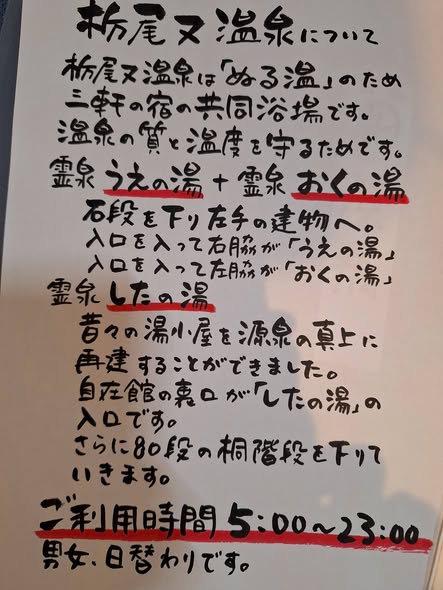 栃尾又温泉について
栃尾又温泉は「ぬる温」のため
三軒の宿の共同浴場です。
温泉の質と温度を守るためです。
霊泉 うえの湯 + 霊泉 おくの湯
石段を下り左手の建物へ。
入口を入って右脇が「うえの湯」
入口を入って左脇が「おくの湯」
霊泉 したの湯
昔々の湯小屋を源泉の真上に
再建することができました。
自在館の裏口が「したの湯」の
入口です。
さらに80段の桐階段を下りて
いきます。
ご利用時間 5:00~23:00
男女、日替わりです。